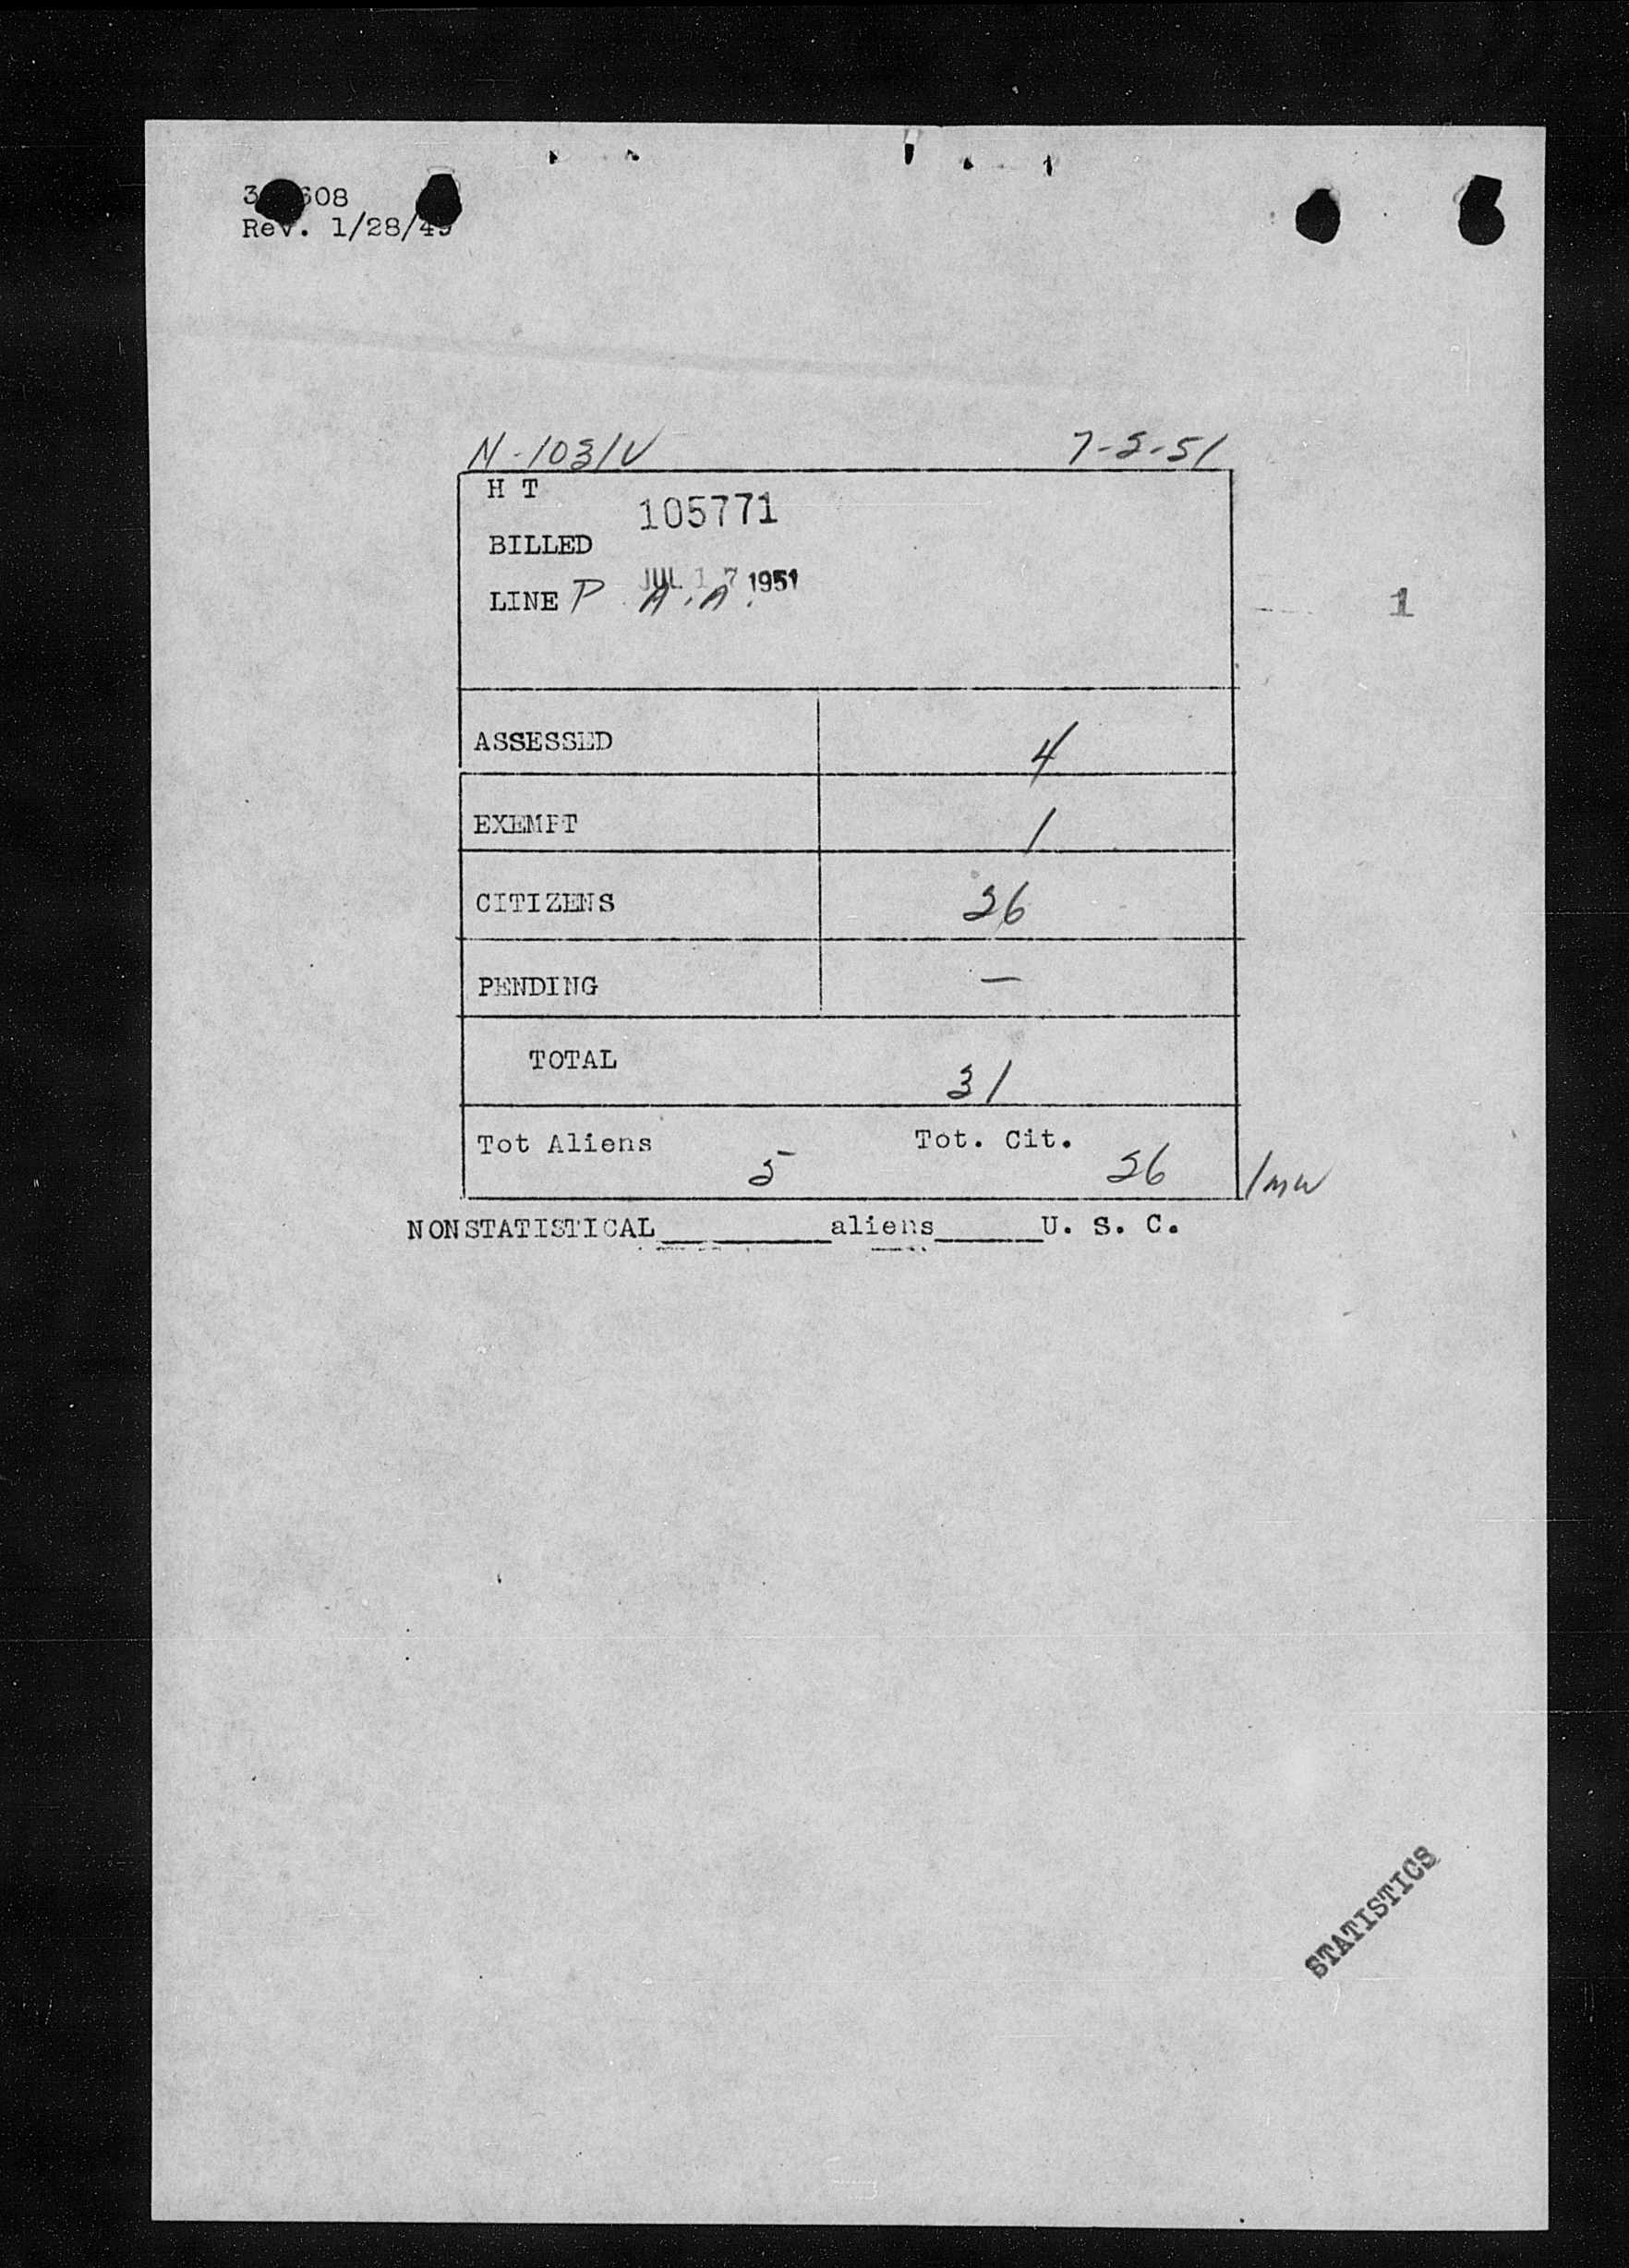 608
Rev. 1/28/49
N-1031V 7-2-51
H T
105771
BILLED
JUL 17 1951
LINE P.A.A.
1
ASSESSED 4
EXEMPT 1
CITIZENS 26
PENDING —
TOTAL 31
Tot Aliens 5 Tot. Cit. 26
NONSTATISTICAL_______aliens_____U. S. C.
STATISTICS